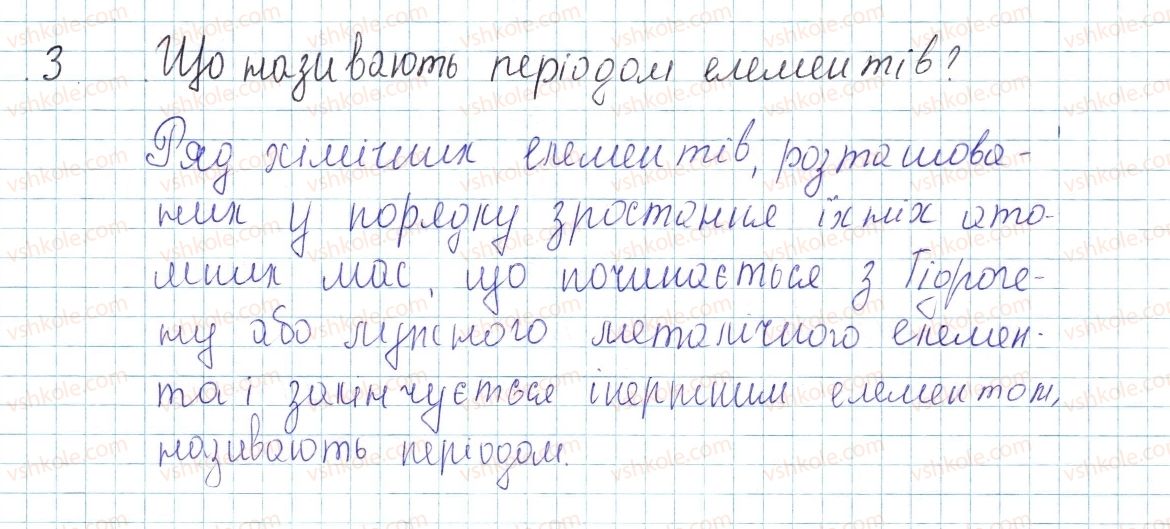 3 Що називають періодом елементів?
Ряд хімічних елементів, розташова-
них у порядку зростання їхніх ато-
мних мас, що починається з Гідроге-
ну або лужного металічного елемен-
та і закінчується інертним елементом,
називають періодом.